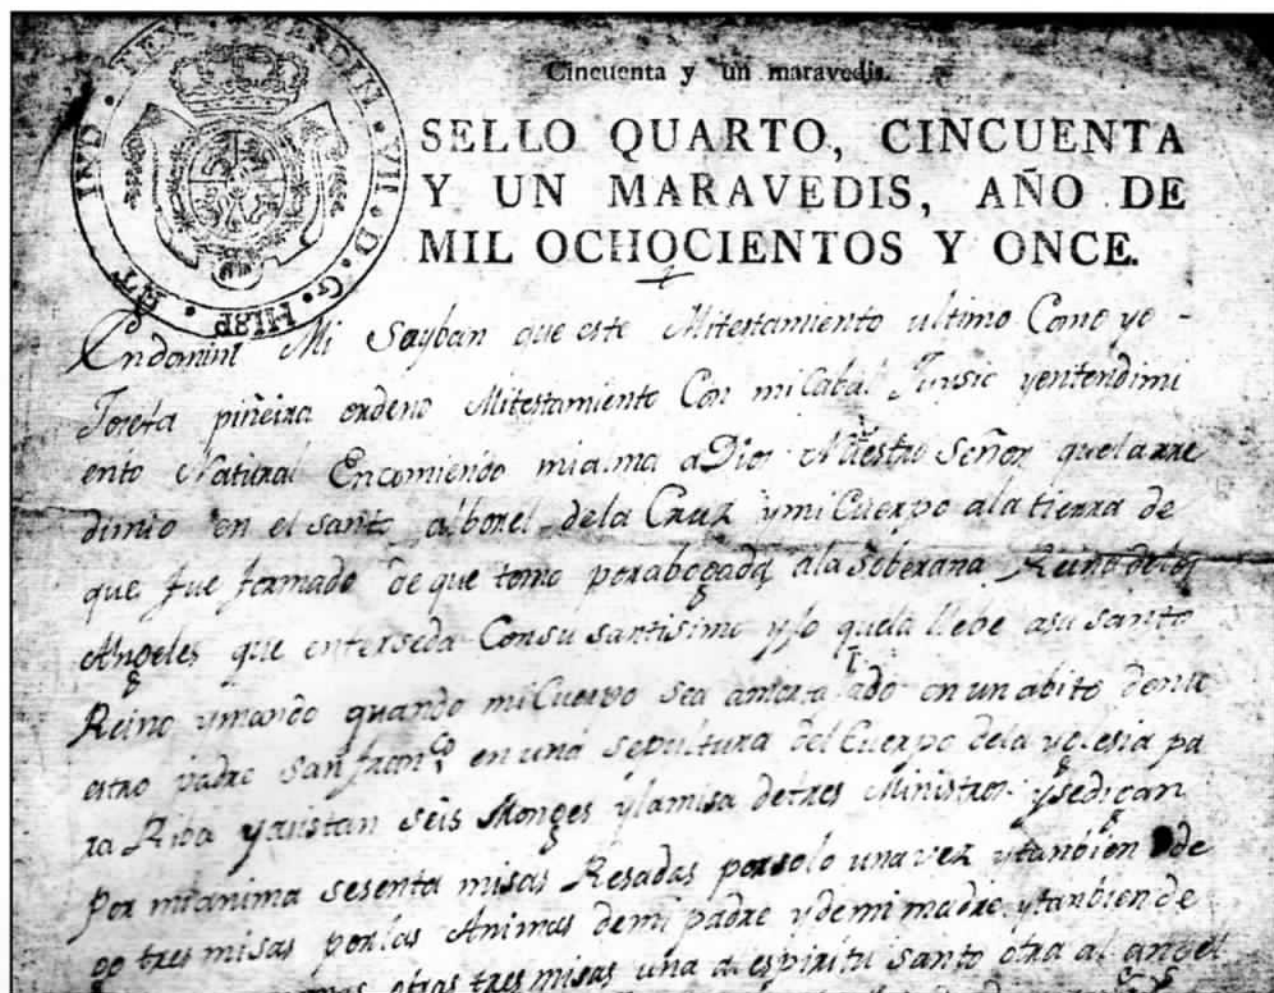 FERDIN · VII · D · G · HISP · ET IND · REX ·
Cincuenta y un maravedis.
SELLO QUARTO, CINCUENTA
Y UN MARAVEDIS, AÑO DE
MIL OCHOCIENTOS Y ONCE.
Endomini Mi Sayban que este Mitestamiento ultimo Como yo
Josefa piñeira ordeno Mitestamiento Con mi Cabal yentendimi
ento Natural Encomiendo mialma aDios Nuestro Señor quelarre
dimio en el santo alborel dela Cruz ymi Cuerpo ala tierra de
que fue formado de que tomo porabogada ala Soberana Reina delos
Angeles que enterseda Consu santisimo yjo quela llebe asu santo
Reino ymando quando mi Cuerpo sea amortalado en un abito denu
estro padre san franco en una sepultura del Cuerpo dela yglesia pa
ra Riba yaustan seis Monges ylamisa detres Ministros ysedigan
por mianima sesenta misas Resadas porsolo una vez ytanbien de
go tres misas porlas Animas demi padre ydemi madre ytanbien de
otras tres misas una al espiritu santo otra al angel